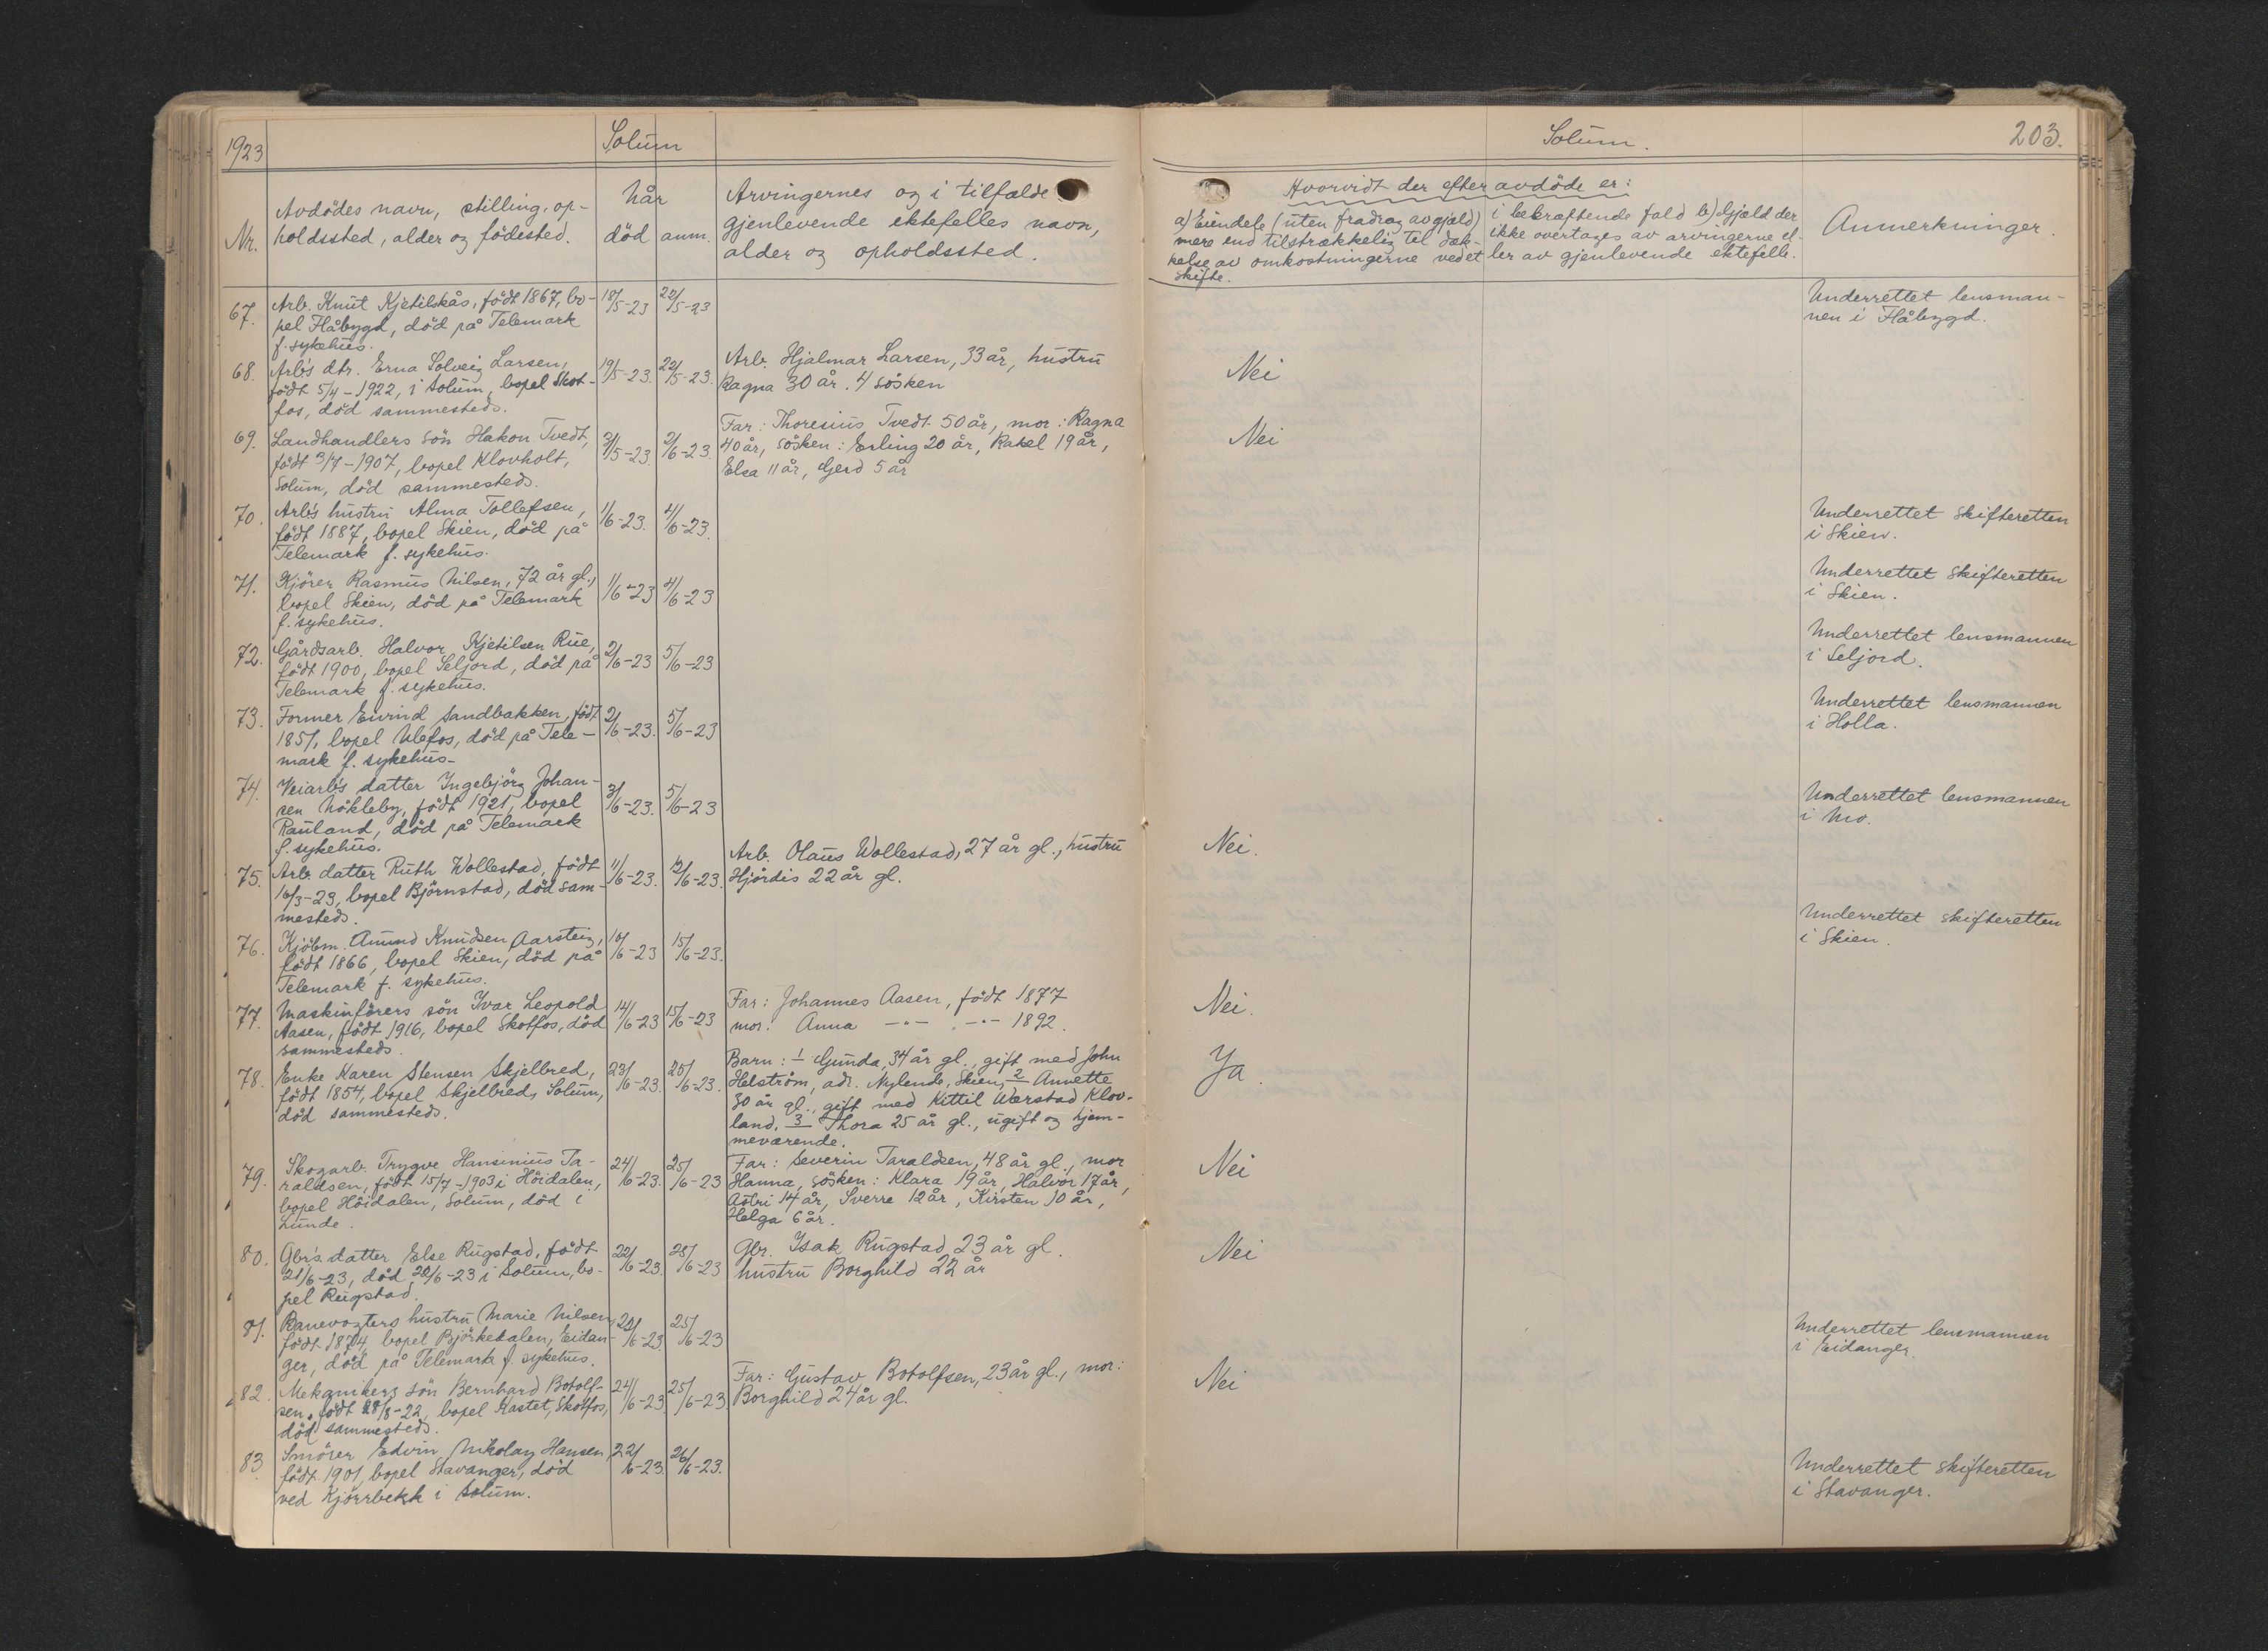 1923
Solum
Nr.
Avdødes navn, stilling, op-
holdssted, alder og fødested.
Når
død
anm.
Arvingernes og i tilfælde
gjenlevende ektefelles navn,
alder og opholdssted.
67.
Arb. Knut Kjetilskås, født 1867, bo-
pel Flåbygd, død på Telemark
f. sykehus.
18/5-23
22/5-23
68.
Arb's dtr. Erna Solveig Larsen,
født 5/4-1922, i Solum, bopel Skot-
fos, død sammesteds.
19/5-23.
22/5-23.
Arb. Hjalmar Larsen, 33 år, hustru
Ragna 30 år. 4 søsken
69.
Landhandlers søn Hakon Tvedt,
født 3/7-1907, bopel Klovholt,
Solum, død sammesteds.
31/5-23.
2/6-23.
Far: Thoresius Tvedt 50 år, mor: Ragna
40 år, søsken: Erling 20 år, Rakel 19 år,
Elsa 11 år, Gerd 5 år
70.
Arb's hustru Alma Tollefsen,
født 1887, bopel Skien, død på
Telemark f. sykehus.
1/6-23.
4/6-23.
71.
Kjörer Rasmus Nilsen, 72 år gl.,
bopel Skien, død på Telemark
f. sykehus.
1/6-23
4/6-23
72.
Gårdsarb. Halvor Kjetilsen Rue,
født 1900, bopel Seljord, død på
Telemark f. sykehus.
2/6-23
5/6-23
73.
Former Eivind Sandbakken, født
1857, bopel Ulefos, død på Tele-
mark f. sykehus-
2/6-23.
5/6-23
74.
Veiarb's datter Ingebjörg Johan-
sen Nökleby, født 1921, bopel
Rauland, død på Telemark
f. sykehus.
3/6-23.
5/6-23
75.
Arb. datter Ruth Wollestad, født
16/3-23, bopel Björnstad, død sam-
mesteds.
11/6-23.
12/6-23.
Arb. Olaus Wollestad, 27 år gl., hustru
Hjördis 22 år gl.
76.
Kjöbm. Amund Knudsen Aarsteig,
født 1866, bopel Skien, død på
Telemark f. sykehus.
10/6-23
15/6-23.
77.
Maskinförers søn Ivar Leopold
Aasen, født 1916, bopel Skotfos, død
sammesteds.
14/6-23
15/6-23
Far: Johannes Aasen, født 1877
mor: Anna -"- -"- 1892.
78.
Enke Karen Stensen Skjelbred,
født 1854, bopel Skjelbred, Solum,
død sammesteds.
23/6-23.
25/6-23.
Barn: 1 Gunda, 34 år gl., gift med John
Helström, adr. Nylende, Skien, 2 Annette
30 år gl., gift med Kittil Værstad Klov-
land. 3 Thora 25 år gl., ugift og hjem-
meværende.
79.
Skogarb. Trygve Hansinius Ta-
raldsen, født 15/7-1903 i Höidalen,
bopel Höidalen, Solum, død i
Lunde.
24/6-23.
25/6-23
Far: Severin Taraldsen, 48 år gl., mor
Hanna, søsken: Klara 19 år, Halvor 17 år,
Astri 14 år, Sverre 12 år, Kirsten 10 år,
Helga 6 år.
80.
Gbr's datter Else Rugstad, født
21/6-23, død 22/6-23 i Solum, bo-
pel Rugstad.
22/6-23.
23/6-23
Gbr. Isak Rugstad 23 år gl.
hustru Borghild 22 år
81.
Banevogters hustru Marie Nilsen,
født 1874, bopel Björkedalen, Eidan-
ger, død på Telemark f. sykehus.
22/6-23
25/6-23
82.
Mekanikers søn Bernhard Botolf-
sen, født 28/8-22, bopel Kastet, Skotfos,
død sammesteds.
24/6-23
25/6-23
Far: Gustav Botolfsen, 23 år gl., mor:
Borghild 24 år gl.
83
Smörer Edvin Nikolay Hansen,
født 1901, bopel Stavanger, død
ved Kjörrbekk i Solum.
22/6-23.
26/6-23.
Solum.
203.
Hvorvidt der efter avdøde er:
a) Eiendele (uten fradrag av gjæld)
mere end tilstrækkelig til dæk-
kelse av omkostningerne ved et
skifte.
i bekræftende fald b) Gjæld der
ikke overtages av arvingerne el-
ler av gjenlevende ektefelle.
Anmerkninger.
Underrettet lensman-
nen i Flåbygd.
Nei
Nei
Underrettet skifteretten
i Skien.
Underrettet skifteretten
i Skien.
Underrettet lensmannen
i Seljord.
Underrettet lensmannen
i Holla.
Underrettet lensmannen
i Mo.
Nei.
Underrettet skifteretten
i Skien.
Nei.
Ja.
Nei
Nei
Underrettet lensmannen
i Eidanger.
Nei
Underrettet skifteretten
i Stavanger.